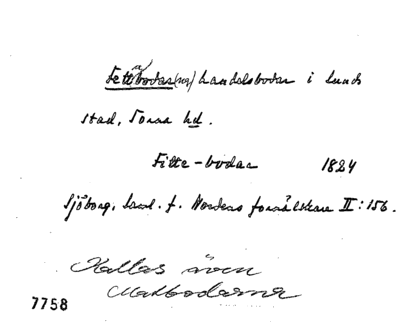 Fettabodar (ng) handelsbodar i Lunds
stad, Torna hd.
Fitte-bodar 1824
Sjöborg, Saml. f. Nordens fornälskare II: 156.
Kallas även
Matbodarna
7758